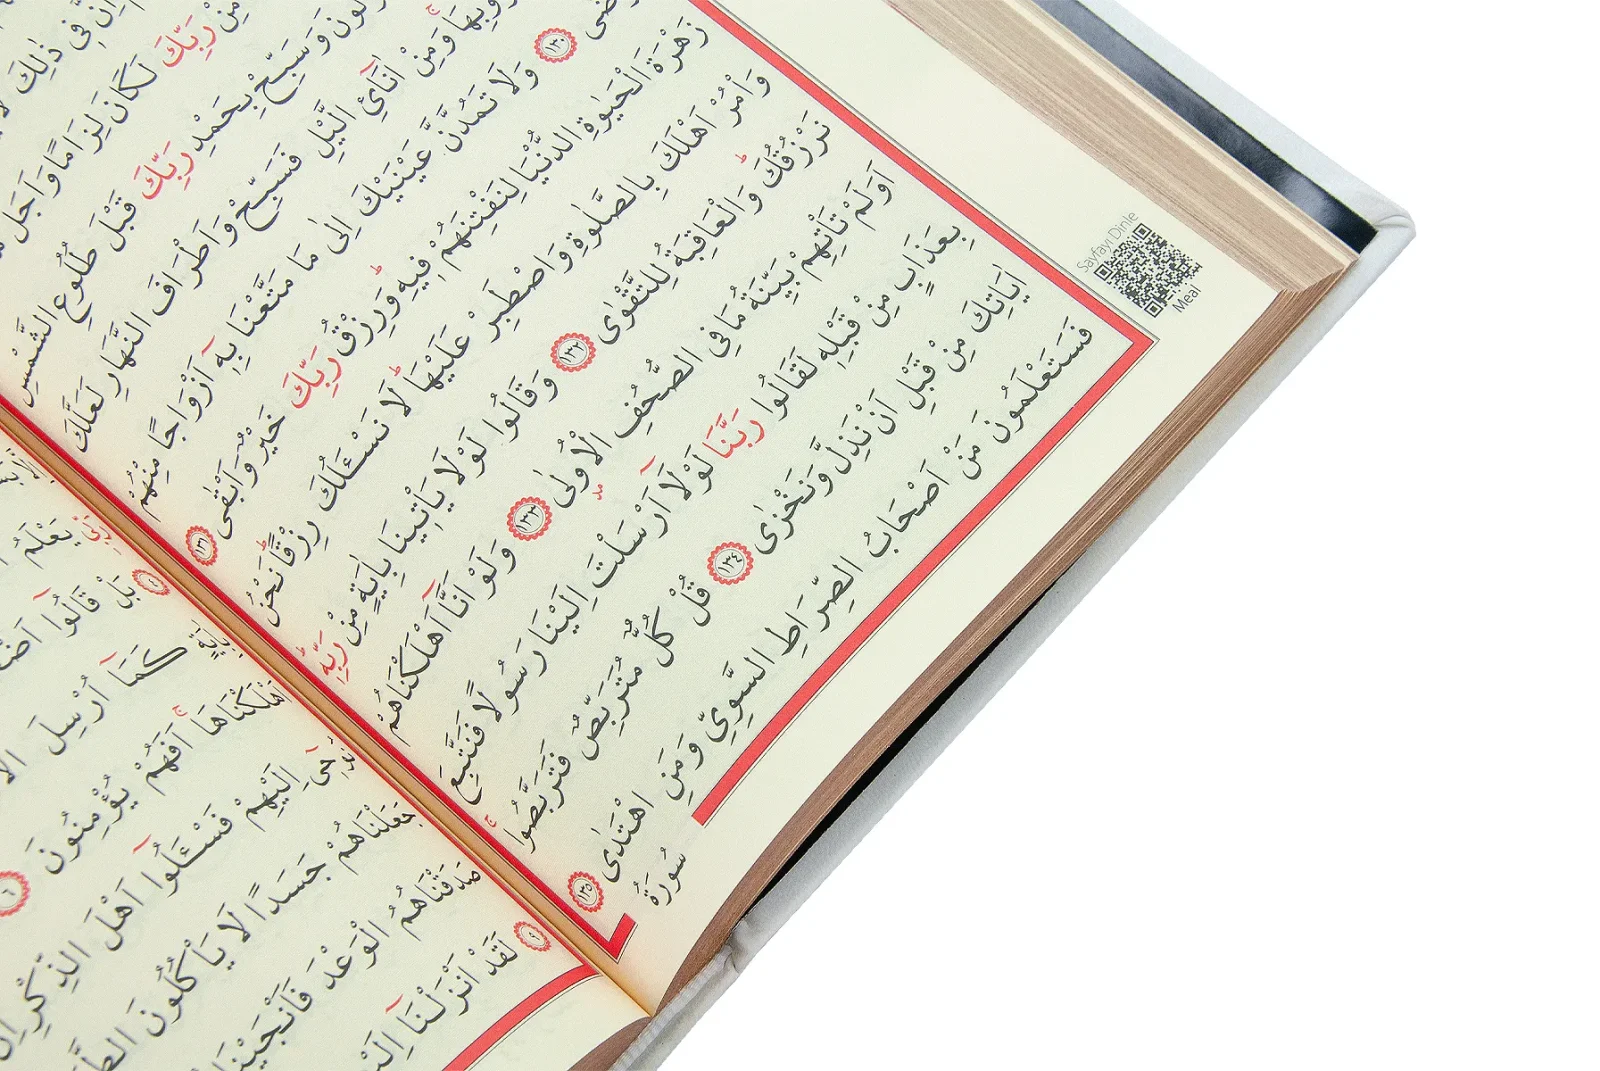 اِنَّ فٖى ذٰلِكَ
مِنْ رَبِّكَ لَكَانَ لِزَامًا وَاَجَلٌ
وَسَبِّحْ بِحَمْدِ رَبِّكَ قَبْلَ طُلُوعِ الشَّمْسِ
وَمِنْ اٰنَٓائِ الَّيْلِ فَسَبِّحْ وَاَطْرَافَ النَّهَارِ لَعَلَّكَ
١٣٠ وَلَا تَمُدَّنَّ عَيْنَيْكَ اِلٰى مَا مَتَّعْنَا بِهٖٓ اَزْوَاجًا مِنْهُمْ
زَهْرَةَ الْحَيٰوةِ الدُّنْيَا لِنَفْتِنَهُمْ فٖيهِ وَرِزْقُ رَبِّكَ خَيْرٌ وَاَبْقٰى ١٣١
وَأْمُرْ اَهْلَكَ بِالصَّلٰوةِ وَاصْطَبِرْ عَلَيْهَا لَا نَسْـَٔلُكَ رِزْقًا نَحْنُ
نَرْزُقُكَ وَالْعَاقِبَةُ لِلتَّقْوٰى ١٣٢ وَقَالُوا لَوْلَا يَأْتٖينَا بِاٰيَةٍ مِنْ رَبِّهٖ
اَوَلَمْ تَأْتِهِمْ بَيِّنَةُ مَا فِى الصُّحُفِ الْاُولٰى ١٣٣ وَلَوْ اَنَّٓا اَهْلَكْنَاهُمْ
بِعَذَابٍ مِنْ قَبْلِهٖ لَقَالُوا رَبَّنَا لَوْلَٓا اَرْسَلْتَ اِلَيْنَا رَسُولًا فَنَتَّبِعَ
اٰيَاتِكَ مِنْ قَبْلِ اَنْ نَذِلَّ وَنَخْزٰى ١٣٤ قُلْ كُلٌّ مُتَرَبِّصٌ فَتَرَبَّصُوا
فَسَتَعْلَمُونَ مَنْ اَصْحَابُ الصِّرَاطِ السَّوِيِّ وَمَنِ اهْتَدٰى ١٣٥
سُورَةُ
Sayfayı Dinle
Meal
رَبّٖى يَعْلَمُ
٤ بَلْ قَالُٓوا
بِاٰيَةٍ كَمَٓا اُرْسِلَ
اَهْلَكْنَاهَا اَفَهُمْ يُؤْمِنُونَ ٦
نُوحٖٓى اِلَيْهِمْ فَسْـَٔلُٓوا اَهْلَ الذِّكْرِ اِنْ
جَعَلْنَاهُمْ جَسَدًا لَا يَأْكُلُونَ
صَدَقْنَاهُمُ الْوَعْدَ
٩ لَقَدْ اَنْزَلْنَٓا